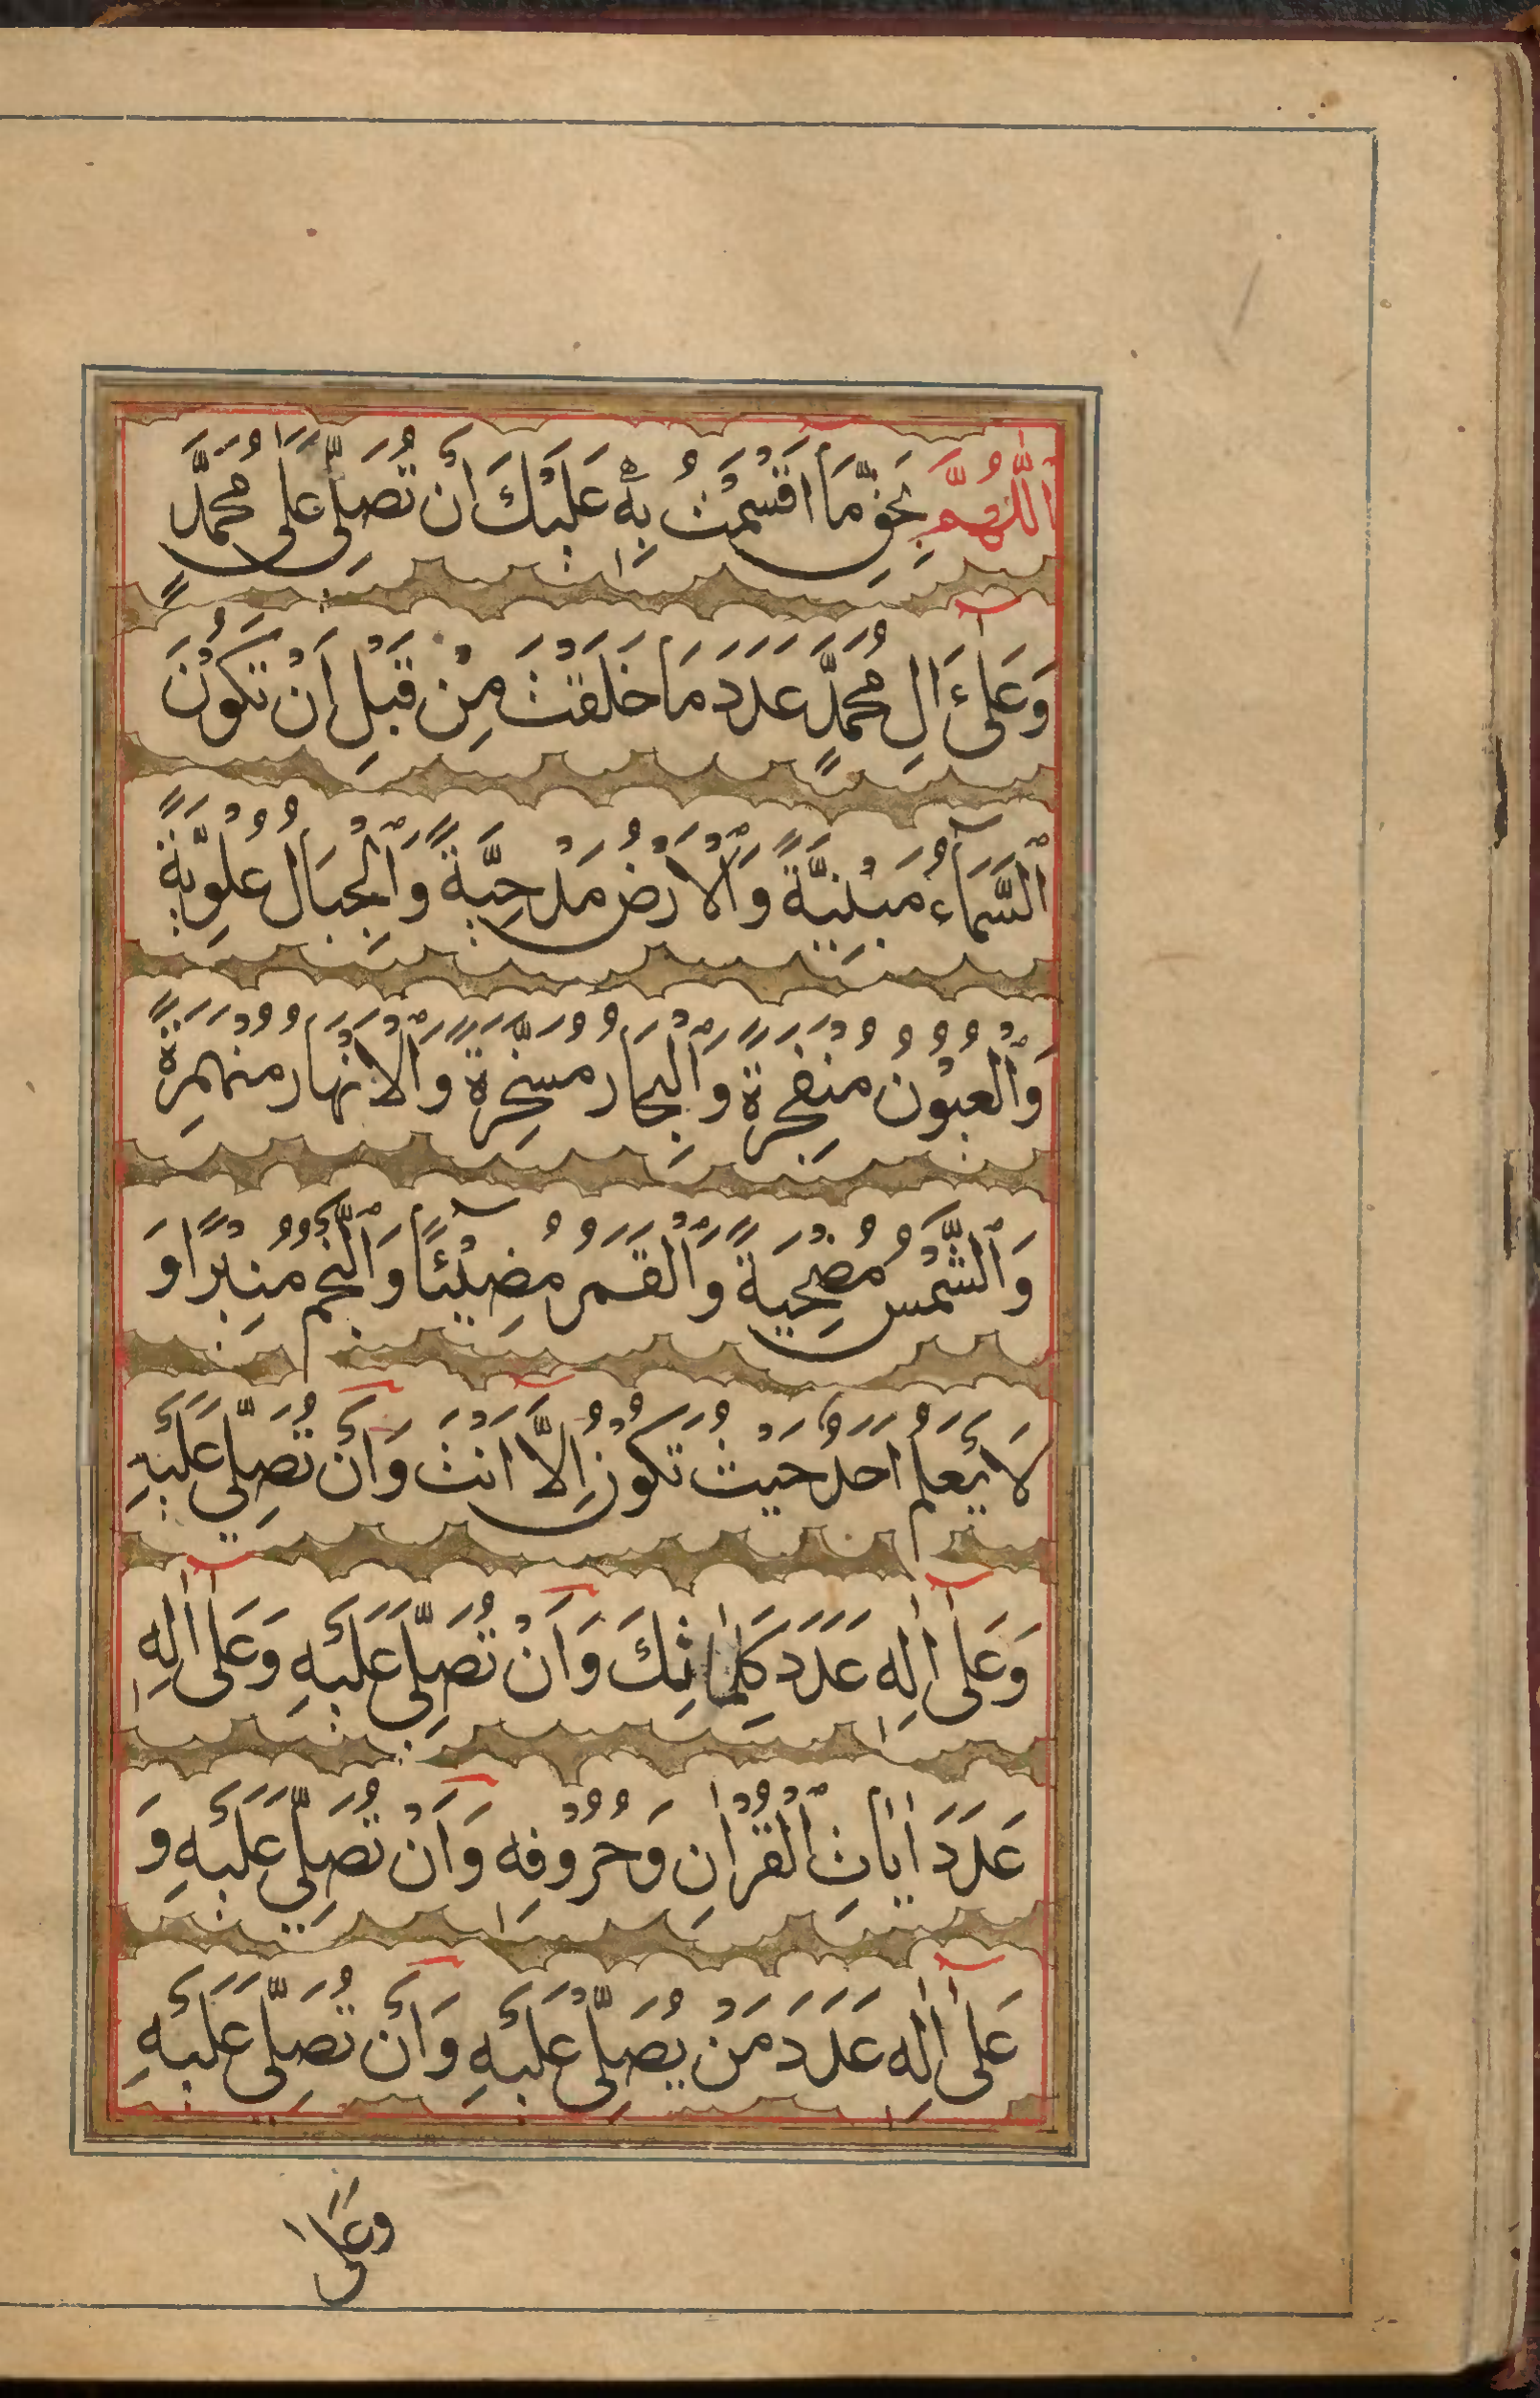 اَللّٰهُمَّ بِحَقِّ مَا اَقْسَمْتُ بِهٖ عَلَيْكَ اَنْ تُصَلِّيَ عَلٰى مُحَمَّدٍ
وَعَلٰى ءَالِ مُحَمَّدٍ عَدَدَ مَا خَلَقْتَ مِنْ قَبْلِ اَنْ تَكُوْنَ
اَلسَّمَآءُ مَبْنِيَّةً وَالْاَرْضُ مَدْحِيَّةً وَالْجِبَالُ عُلْوِيَّةً
وَالْعُيُوْنُ مُنْفَجِرَةً وَالْبِحَارُ مُسَخَّرَةً وَالْاَنْهَارُ مُنْهَمِرَةً
وَالشَّمْسُ مُضْحِيَةً وَالْقَمَرُ مُضِيْئًا وَالنَّجْمُ مُنِيْرًا وَ
لَا يَعْلَمُ اَحَدٌ حَيْثُ تَكُوْنُ اِلَّا اَنْتَ وَاَنْ تُصَلِّيَ عَلَيْهِ
وَعَلٰى اٰلِهٖ عَدَدَ كَلِمَاتِكَ وَاَنْ تُصَلِّيَ عَلَيْهِ وَعَلٰى اٰلِهٖ
عَدَدَ اٰيَاتِ الْقُرْاٰنِ وَحُرُوْفِهٖ وَاَنْ تُصَلِّيَ عَلَيْهِ وَ
عَلٰى اٰلِهٖ عَدَدَ مَنْ يُصَلِّيْ عَلَيْهِ وَاَنْ تُصَلِّيَ عَلَيْهِ
وَعَلٰى